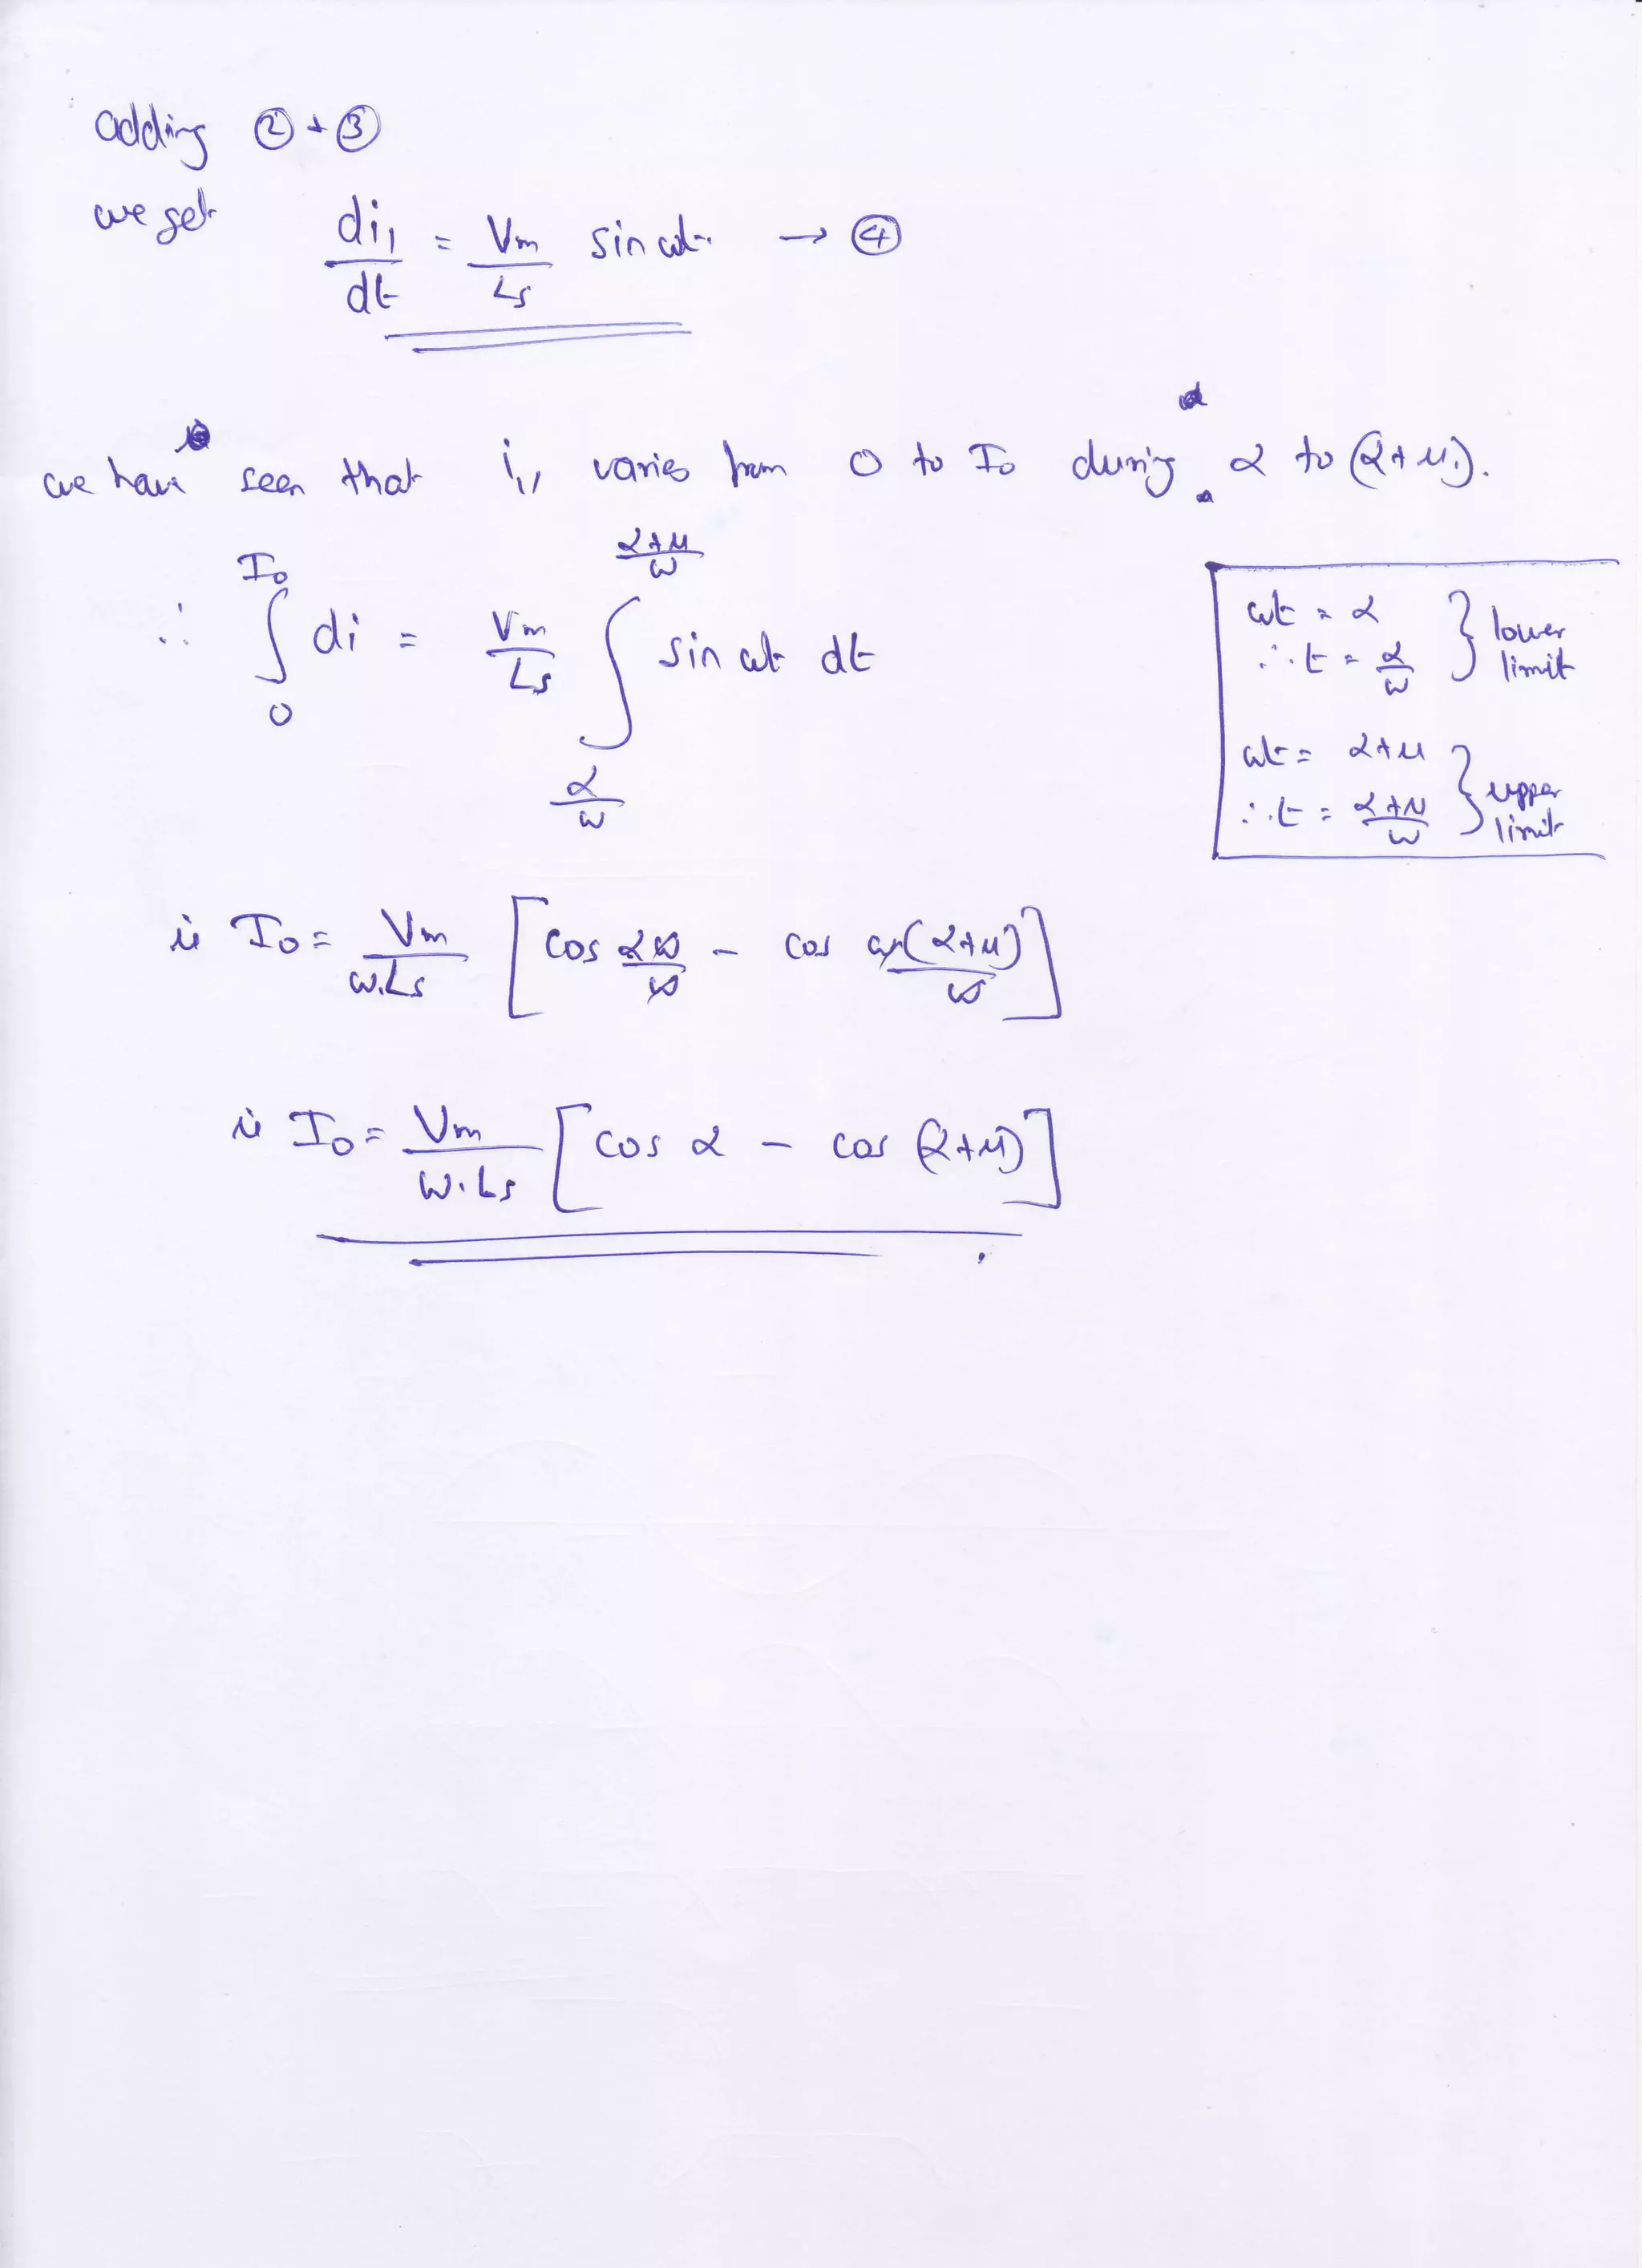 adding ② + ③
we get di₁/dt = Vm/Ls sin ωt → ④
we have seen that i₁, varies from 0 to I₀ during α to (α+μ).
∴ ∫₀^I₀ di = Vm/Ls ∫_(α/ω)^((α+μ)/ω) sin ωt dt
ωt = α
∴ t = α/ω } lower limit
ωt = α+μ
∴ t = (α+μ)/ω } upper limit
ie I₀ = Vm/ω.Ls [cos αω/ω - cos ω(α+μ)/ω]
ie I₀ = Vm/ω.Ls [cos α - cos (α+μ)]